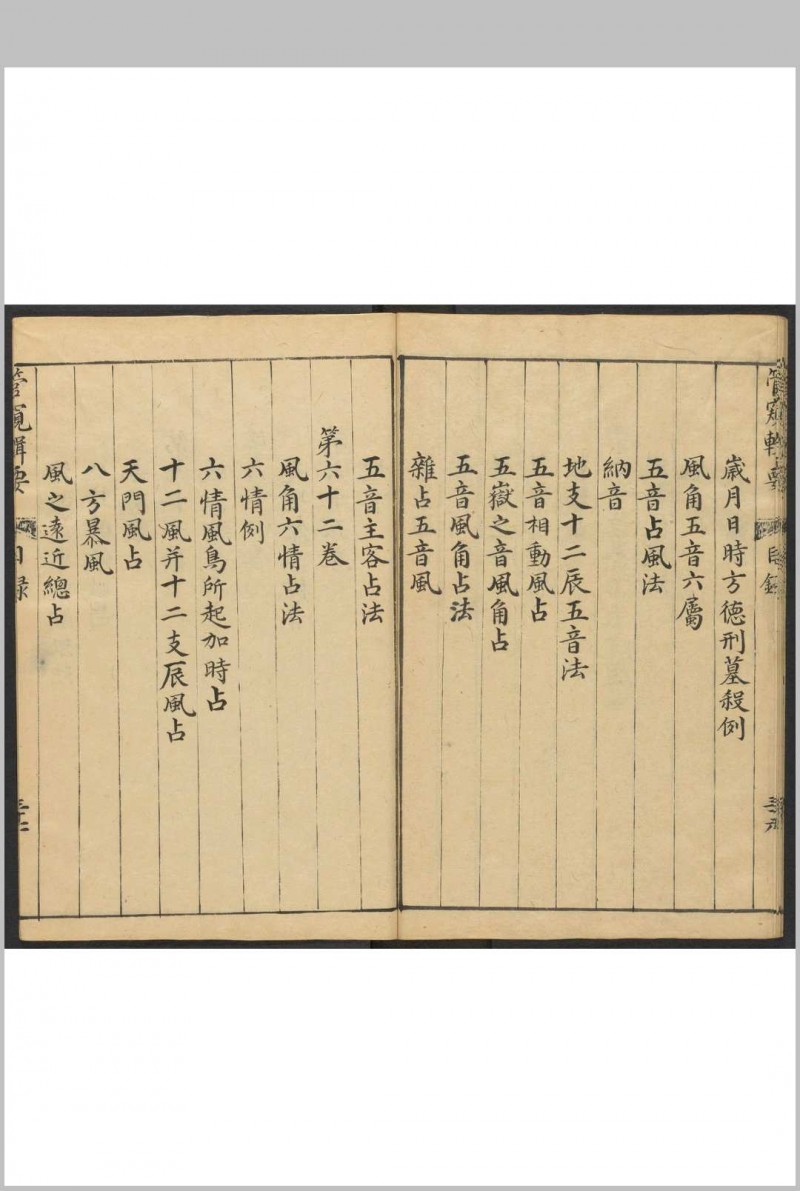 管窺輯要
目錄
歲月日時方德刑墓殺例
風角五音六屬
五音占風法
納音
地支十二辰五音法
五音相動風占
五嶽之音風角占
五音風角占法
雜占五音風
五音主客占法
第六十二卷
風角六情占法
六情例
六情風鳥所起加時占
十二風并十二支辰風占
天門風占
八方暴風
風之遠近總占
管窺輯要
目錄